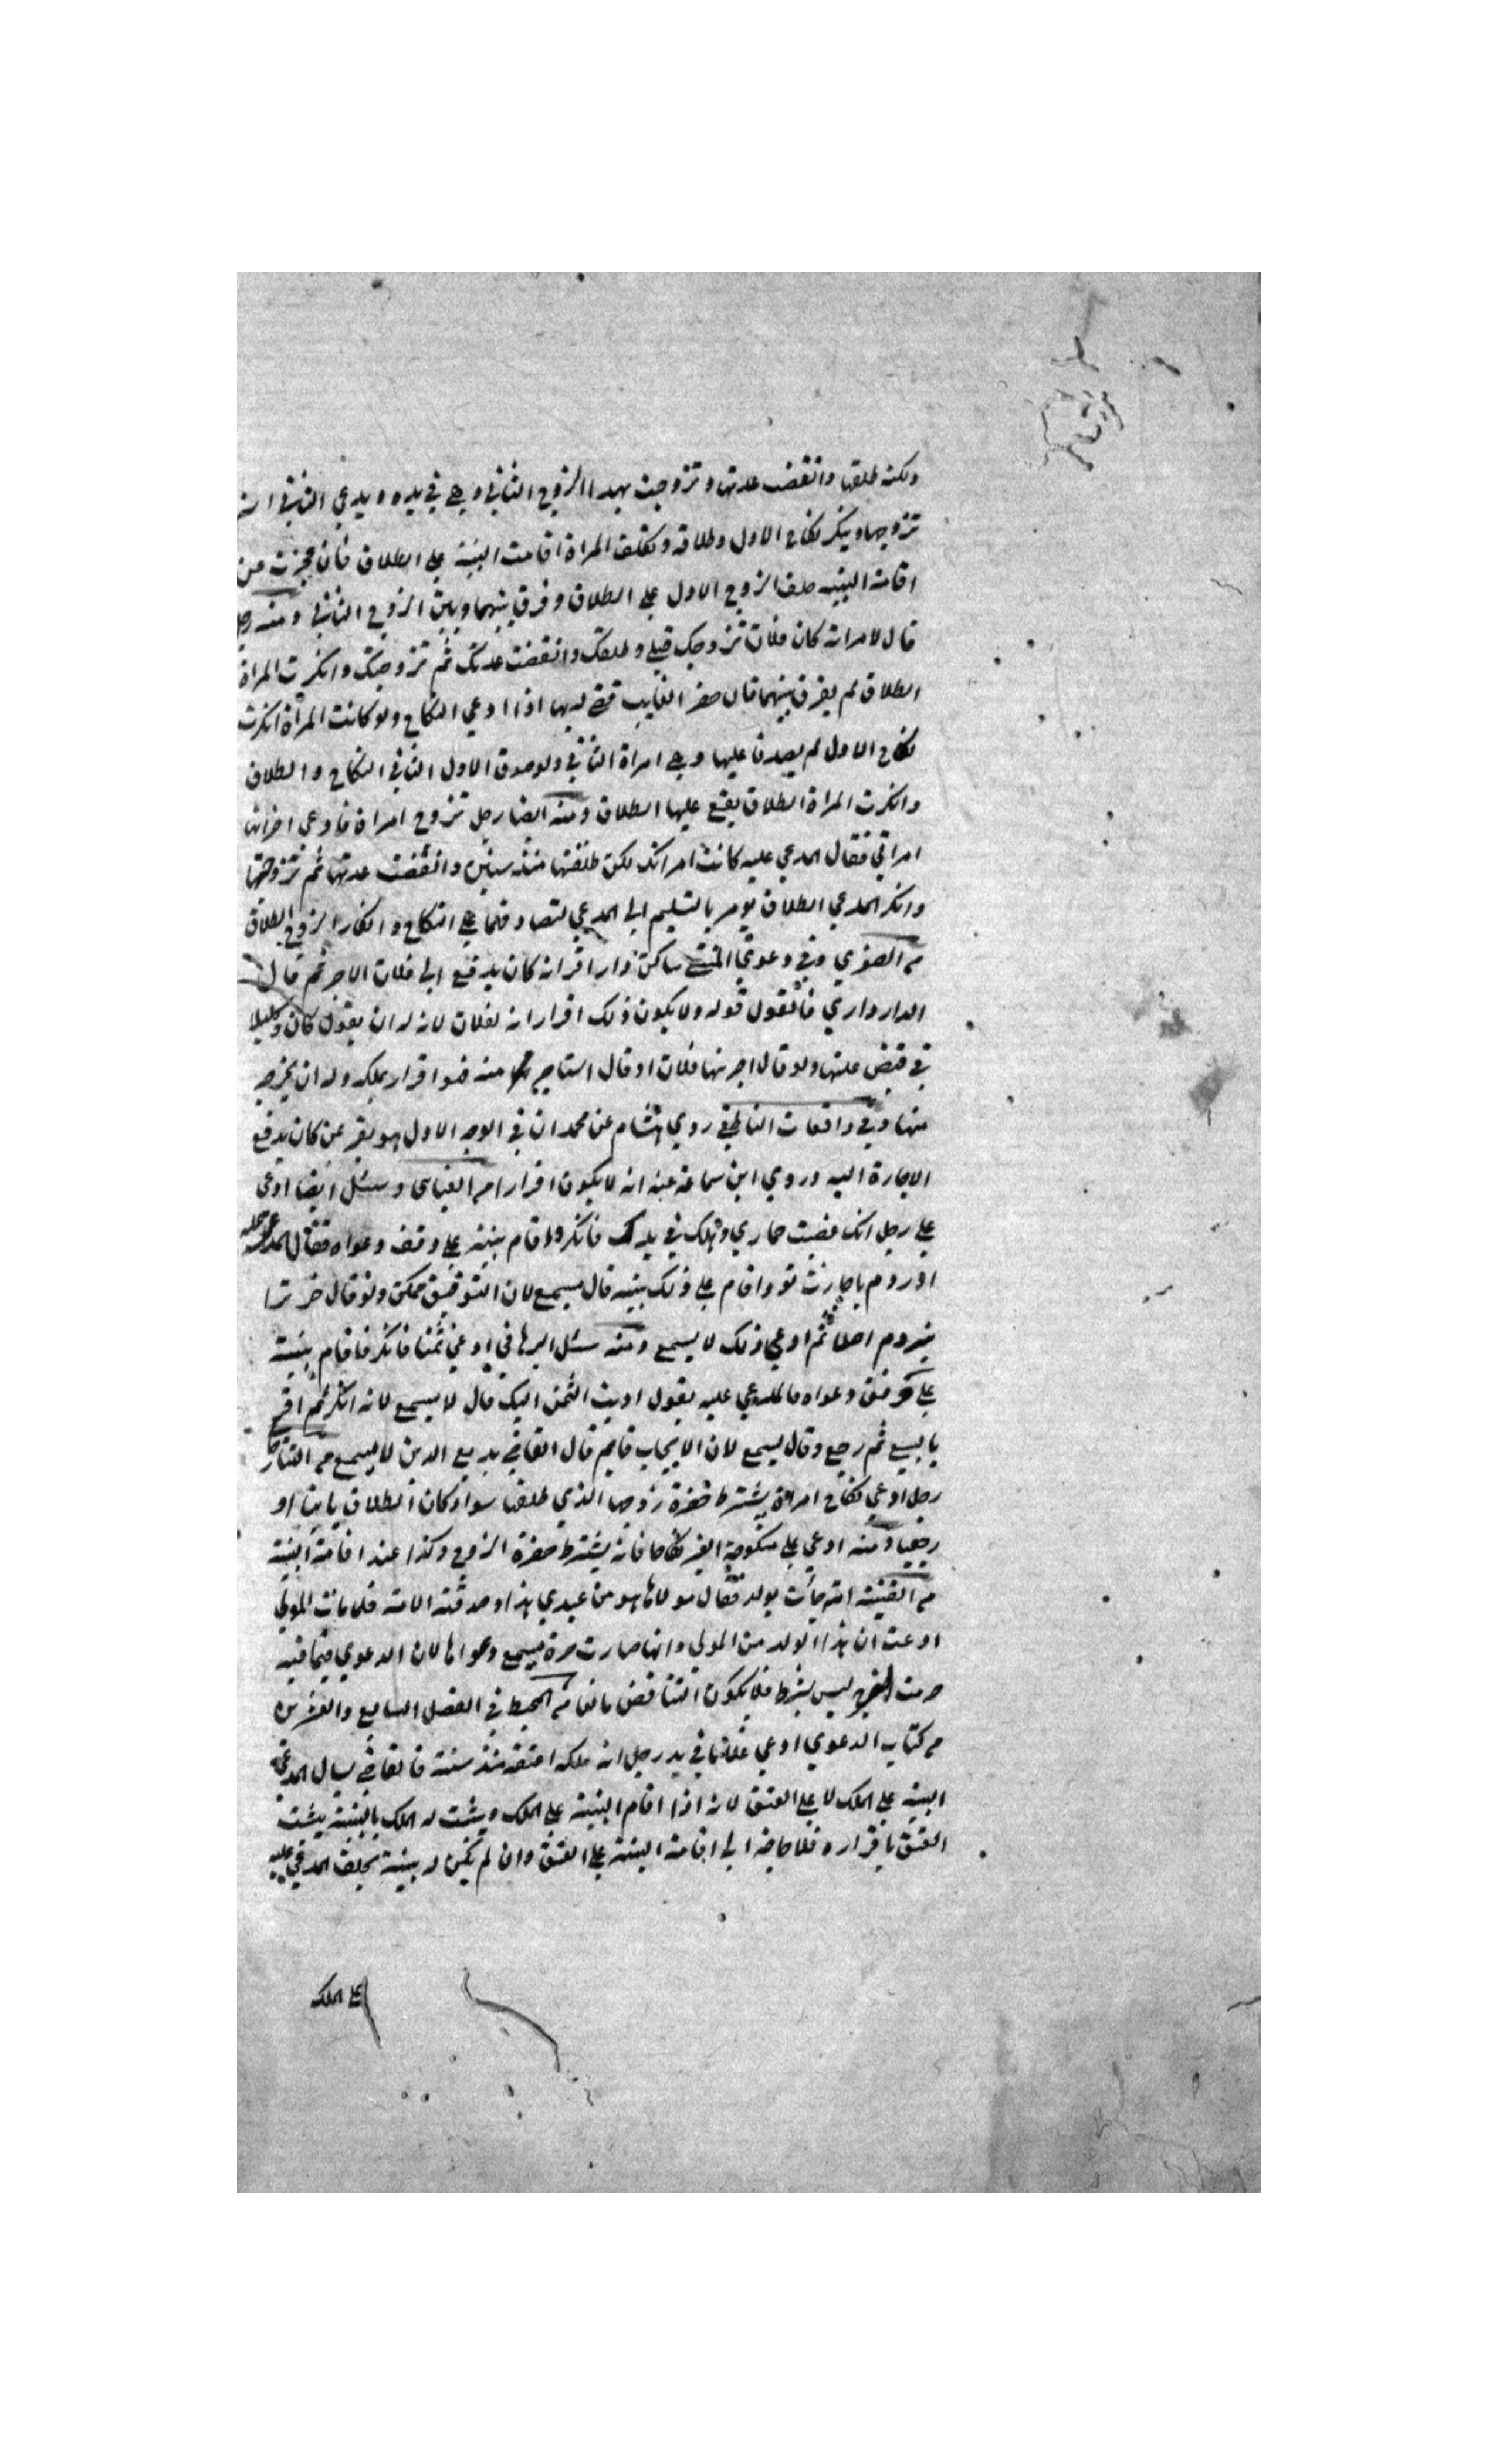 ولكنه طلقها وانقضت عدتها وتزوجت بهذا الزوج الثاني وهي في يده ويدعي الثاني انه
تزوجها وينكر نكاح الاول وطلاقه وتكلف المراة اقامت البينة على الطلاق فان عجزت عن
اقامة البينه حلف الزوج الاول على الطلاق وفرق بينهما وبين الزوج الثاني ومنه رجل
قال لامراته كان فلان تزوجك قبلي وطلقك وانقضت عدتك ثم تزوجتك وانكرت المراة
الطلاق لم يفرق بينهما فان حضر الغايب قضي له بها اذا ادعي النكاح ولو كانت المراة انكرت
نكاح الاول لم يصدقا عليها وهي امراة الثاني ولو صدق الاول الثاني في النكاح والطلاق
وانكرت المراة الطلاق يقع عليها الطلاق ومنه ايضا رجل تزوج امراة فادعي اخر انها
امراتي فقال المدعي عليه كانت امراتك لكن طلقتها منذ سنين وانقضت عدتها ثم تزوجتها
وانكر المدعي الطلاق يومر بالتسليم الي المدعي لتصادقهما علي النكاح وانكار الزوج الطلاق
م الصغري وفي دعوي المنتقي ساكن دار اقر انه كان يدفع الي فلان الاجر ثم قال
الدار داري فالقول قوله ولا يكون ذلك اقرارا انه لفلان لانه له ان يقول كان وكيلا
في قبض غلتها ولو قال اجرنيها فلان او قال استاجرتها منه فهو اقرار بملكه وله ان يخرجه
منها وفي واقعات الناطفي روي هشام عن محمد ان في الوجه الاول هو يقر عن كان يدفع
الاجارة اليه وروي ابن سماعة عنه انه لا يكون اقرارا م العتابي وسئل ايضا ادعي
علي رجل انك غصبت حماري وهلك في يدك فانكر واقام بينة علي وفق دعواه فقال المدعي عليه
او ردم باجازت تو واقام علي ذلك بينه قال يسمع لان التوفيق ممكن ولو قال خر ترا
نبردم اصلا ثم ادعي ذلك لا يسمع ومنه سئل البرهاني ادعي ثمنا فانكر فاقام بينة
علي وفق دعواه فالمدعي عليه يقول اديت الثمن اليك قال لا يسمع لانه انكر ثم اقر
بالبيع ثم رجع وقال يسمع لان الايجاب قايم قال القاضي بديع الدين لا يسمع م التناقض
رجل ادعي نكاح امراة يشترط حضرة زوجها الذي طلقها سواء كان الطلاق باينا او
رجعيا ومنه ادعي علي منكوحة الغير نكاحا فانه يشترط حضرة الزوج وكذا عند اقامة البينة
م القنية امة جأت بولد فقال مولاها هو من عبدي هذا وصدقته الامة فلما مات المولي
ادعت ان هذا الولد من المولي وانها صارت حرة يسمع دعواها لان الدعوي فيما فيه
حرمت الفرج ليس بشرط فلا يكون التناقض مانعا م المحيط في الفصل السابع والعشرين
م كتاب الدعوي ادعي غلاما في يد رجل انه ملكه اعتقه منذ سنة فالقاضي يسال المدعي
البينه علي الملك لا علي العتق لانه اذا اقام البينة علي الملك ويثبت له الملك بالبينة يثبت
العتق باقراره فلا حاجة الي اقامة البينة علي العتق وان لم يكن له بينة يحلف المدعي عليه
علي الملك